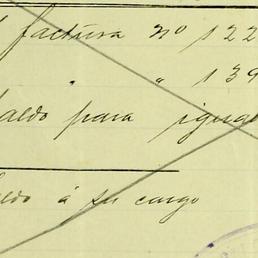 factura nº 122
" " 139
saldo para igual
saldo á su cargo